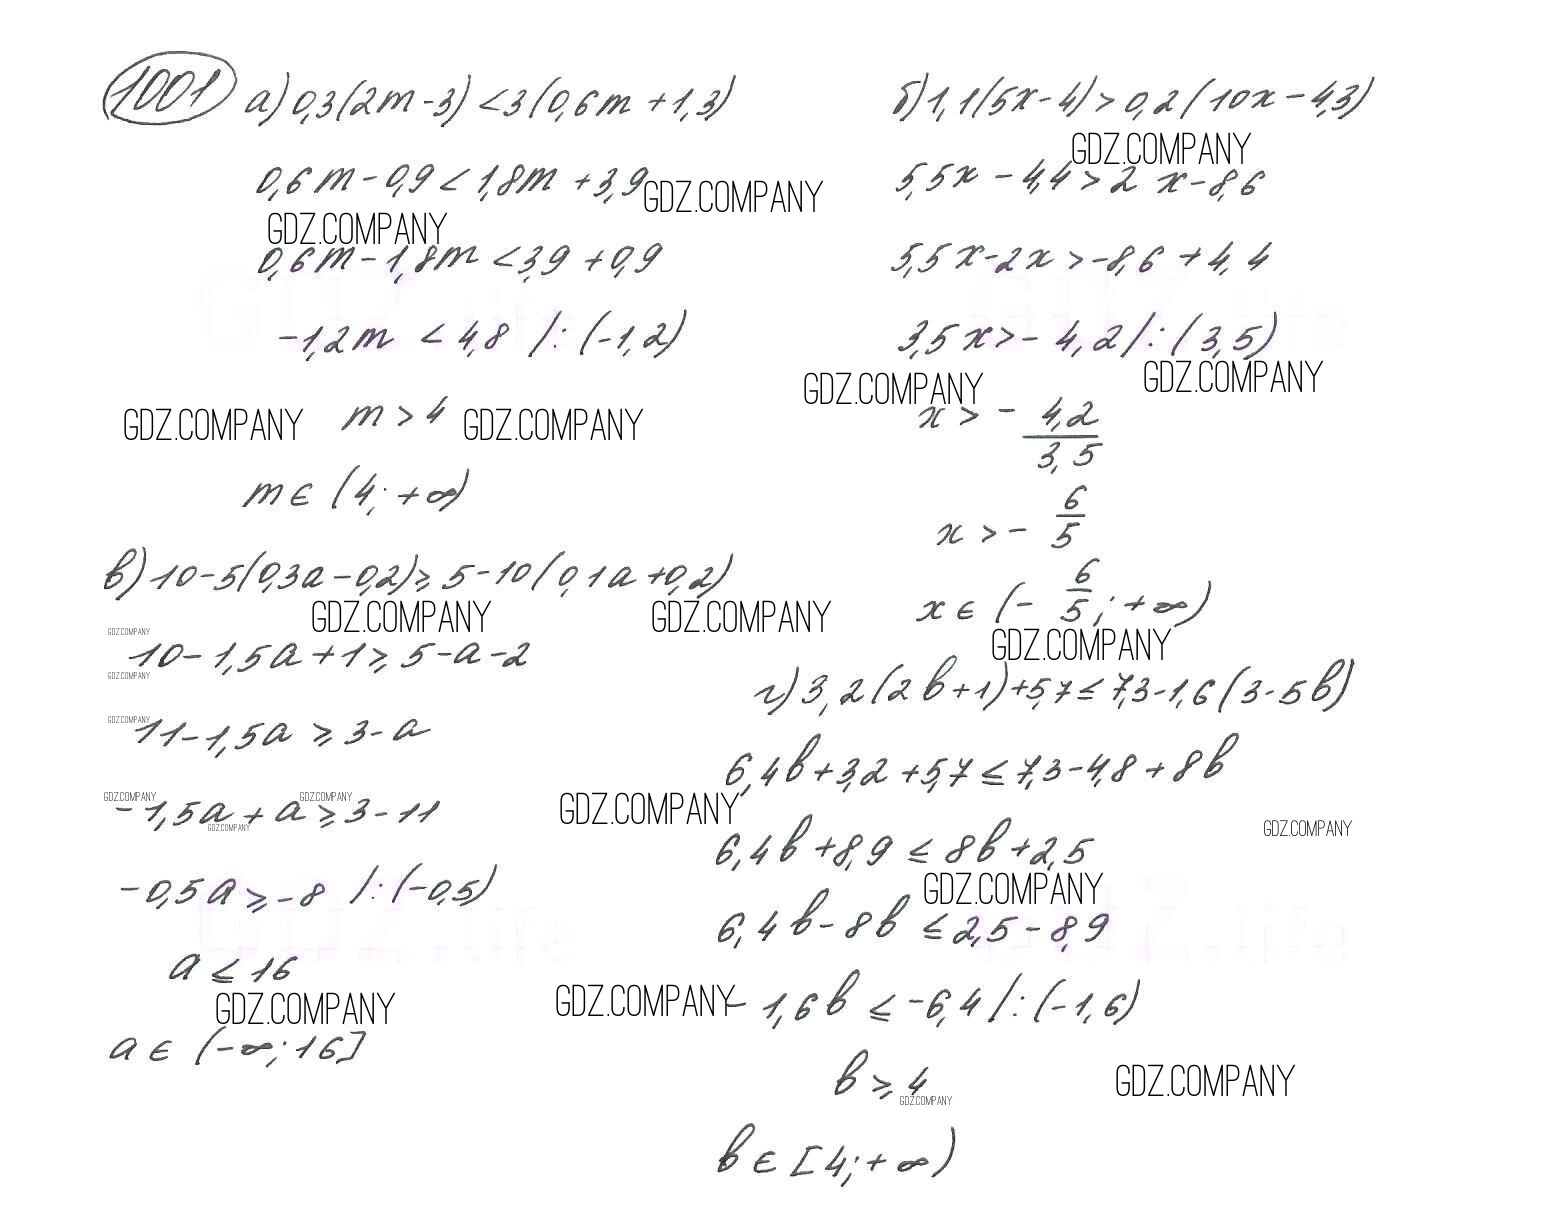 1001 а) 0,3(2m-3)<3(0,6m+1,3)
0,6m-0,9<1,8m+3,9
GDZ.COMPANY
GDZ.COMPANY
0,6m-1,8m<3,9+0,9
-1,2m<4,8 /:(-1,2)
GDZ.COMPANY
m>4
GDZ.COMPANY
m∈(4;+∞)
б) 1,1(5x-4)>0,2(10x-4,3)
GDZ.COMPANY
5,5x-4,4>2x-8,6
5,5x-2x>-8,6+4,4
3,5x>-4,2/:(3,5)
GDZ.COMPANY
GDZ.COMPANY
x>-4,2/3,5
x>-6/5
x∈(-6/5;+∞)
GDZ.COMPANY
в) 10-5(0,3a-0,2)≥5-10(0,1a+0,2)
GDZ.COMPANY
GDZ.COMPANY
GDZ.COMPANY
10-1,5a+1≥5-a-2
GDZ.COMPANY
GDZ.COMPANY
11-1,5a≥3-a
GDZ.COMPANY
GDZ.COMPANY
-1,5a+a≥3-11
GDZ.COMPANY
-0,5a≥-8 /:(-0,5)
GDZ.life
a≤16
GDZ.COMPANY
a∈(-∞;16]
г) 3,2(2b+1)+5,7≤7,3-1,6(3-5b)
6,4b+3,2+5,7≤7,3-4,8+8b
GDZ.COMPANY
GDZ.COMPANY
6,4b+8,9≤8b+2,5
GDZ.COMPANY
6,4b-8b≤2,5-8,9
GDZ.life
GDZ.COMPANY
-1,6b≤-6,4/:(-1,6)
b≥4
GDZ.COMPANY
GDZ.COMPANY
b∈[4;+∞)